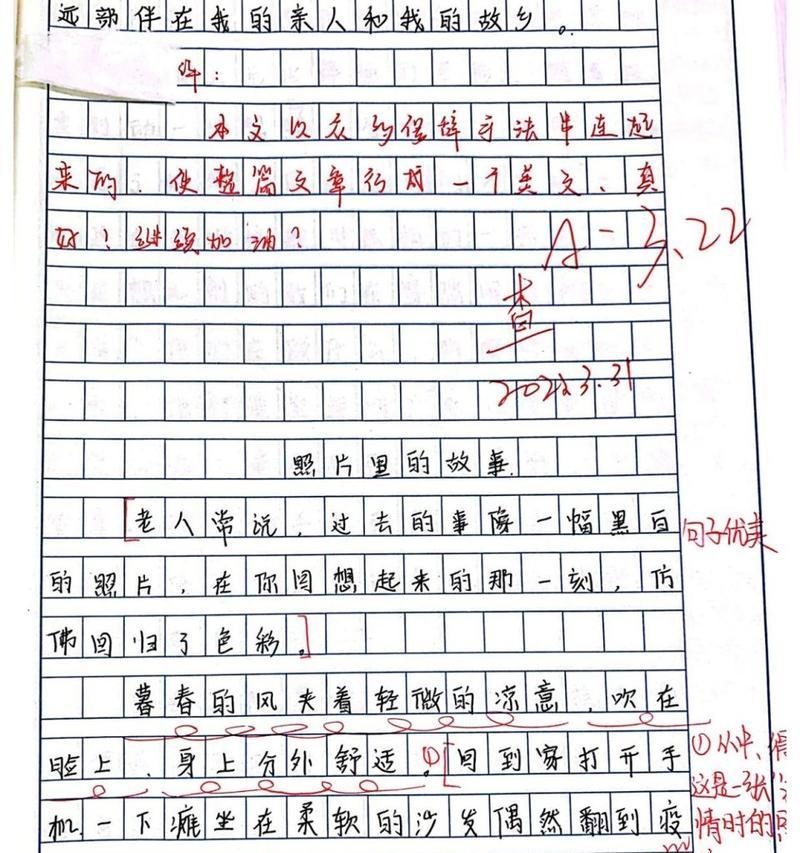 远都伴在我的亲人和我的故乡。
本文以众多修辞手法串连起
来的、使整篇文章行成一个美文、真
好！继续加油？
A- 3.22
查
2022.3.31
照片里的故事.
[老人常说，过去的事像一幅黑白
句子优美
的照片，在你回想起来的那一刻，仿
佛回归了色彩。]
暮春的风夹着轻微的凉意，吹在
脸上、身上分外舒适。①[回到家打开手
①从中、得
机一下瘫坐在柔软的沙发偶然翻到疫
这是一张
情时的